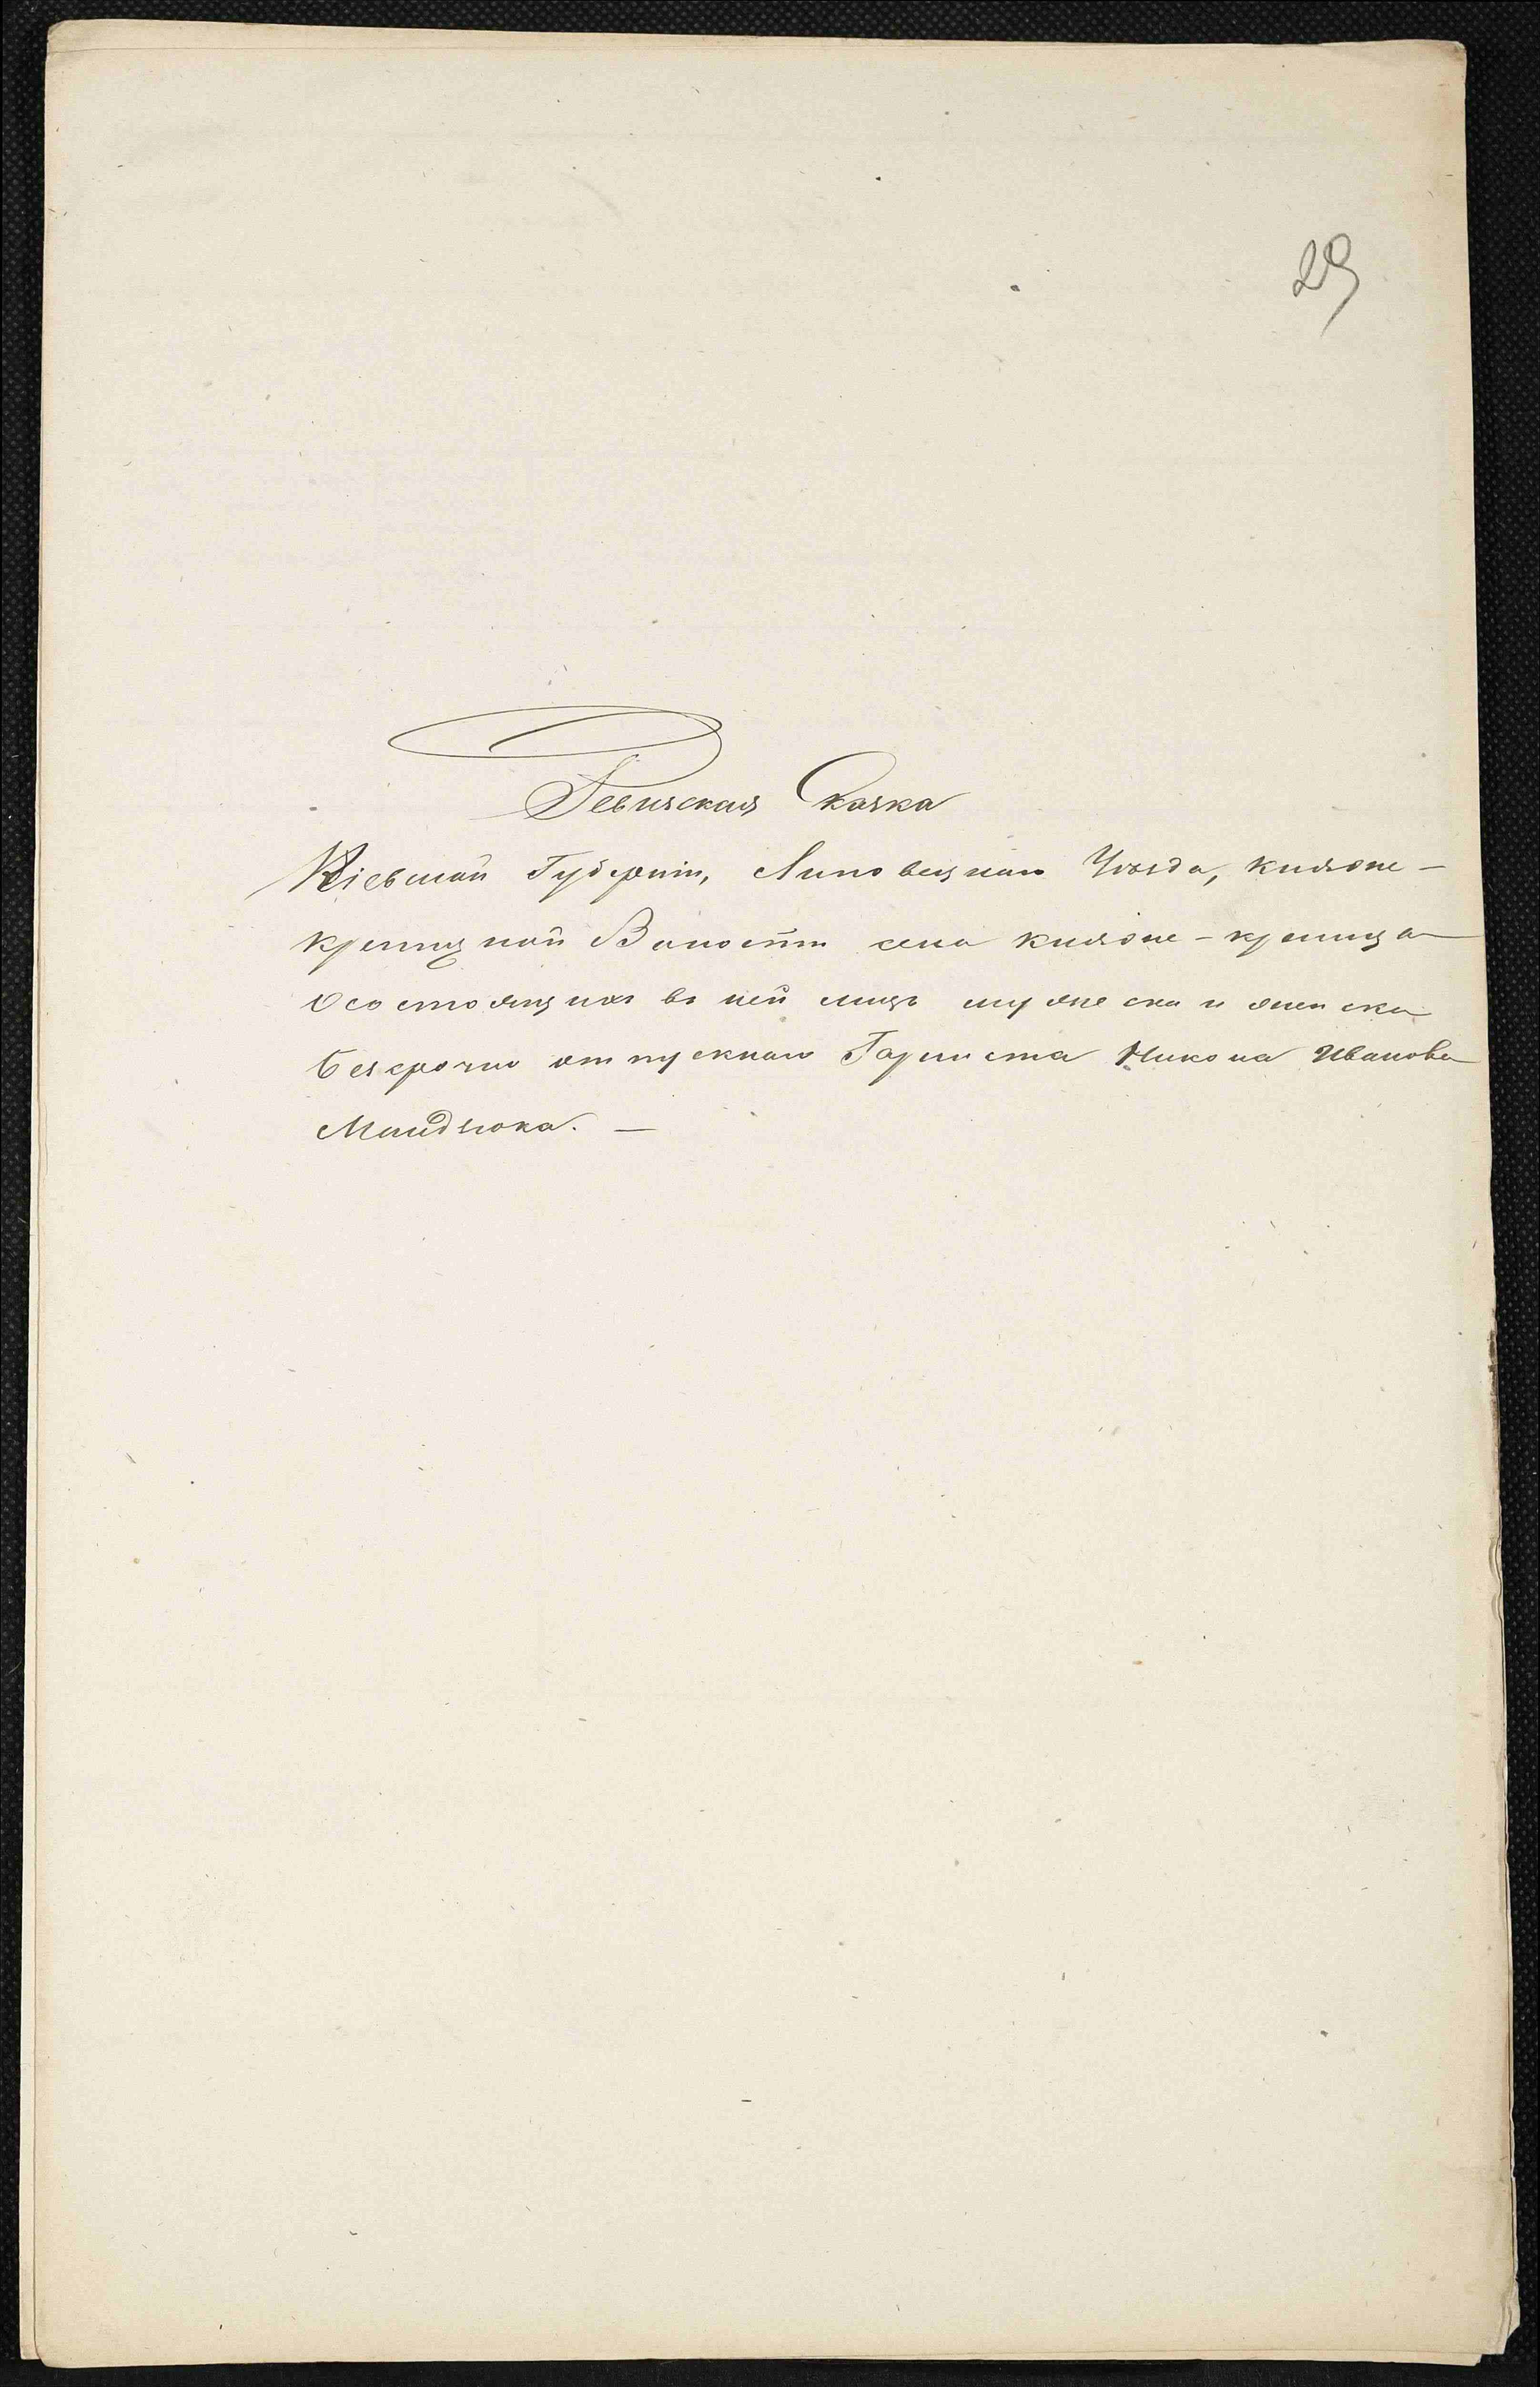 29
Ревизская Сказка
Кіевской Губерніи, Липовецкаго Уѣзда, Княже-
криницкой Волости села княже-криница
О состоящихъ въ ней лицъ мужеска и женска
безсрочно отпускнаго Горниста Никона Иванова
Мандзюка. —